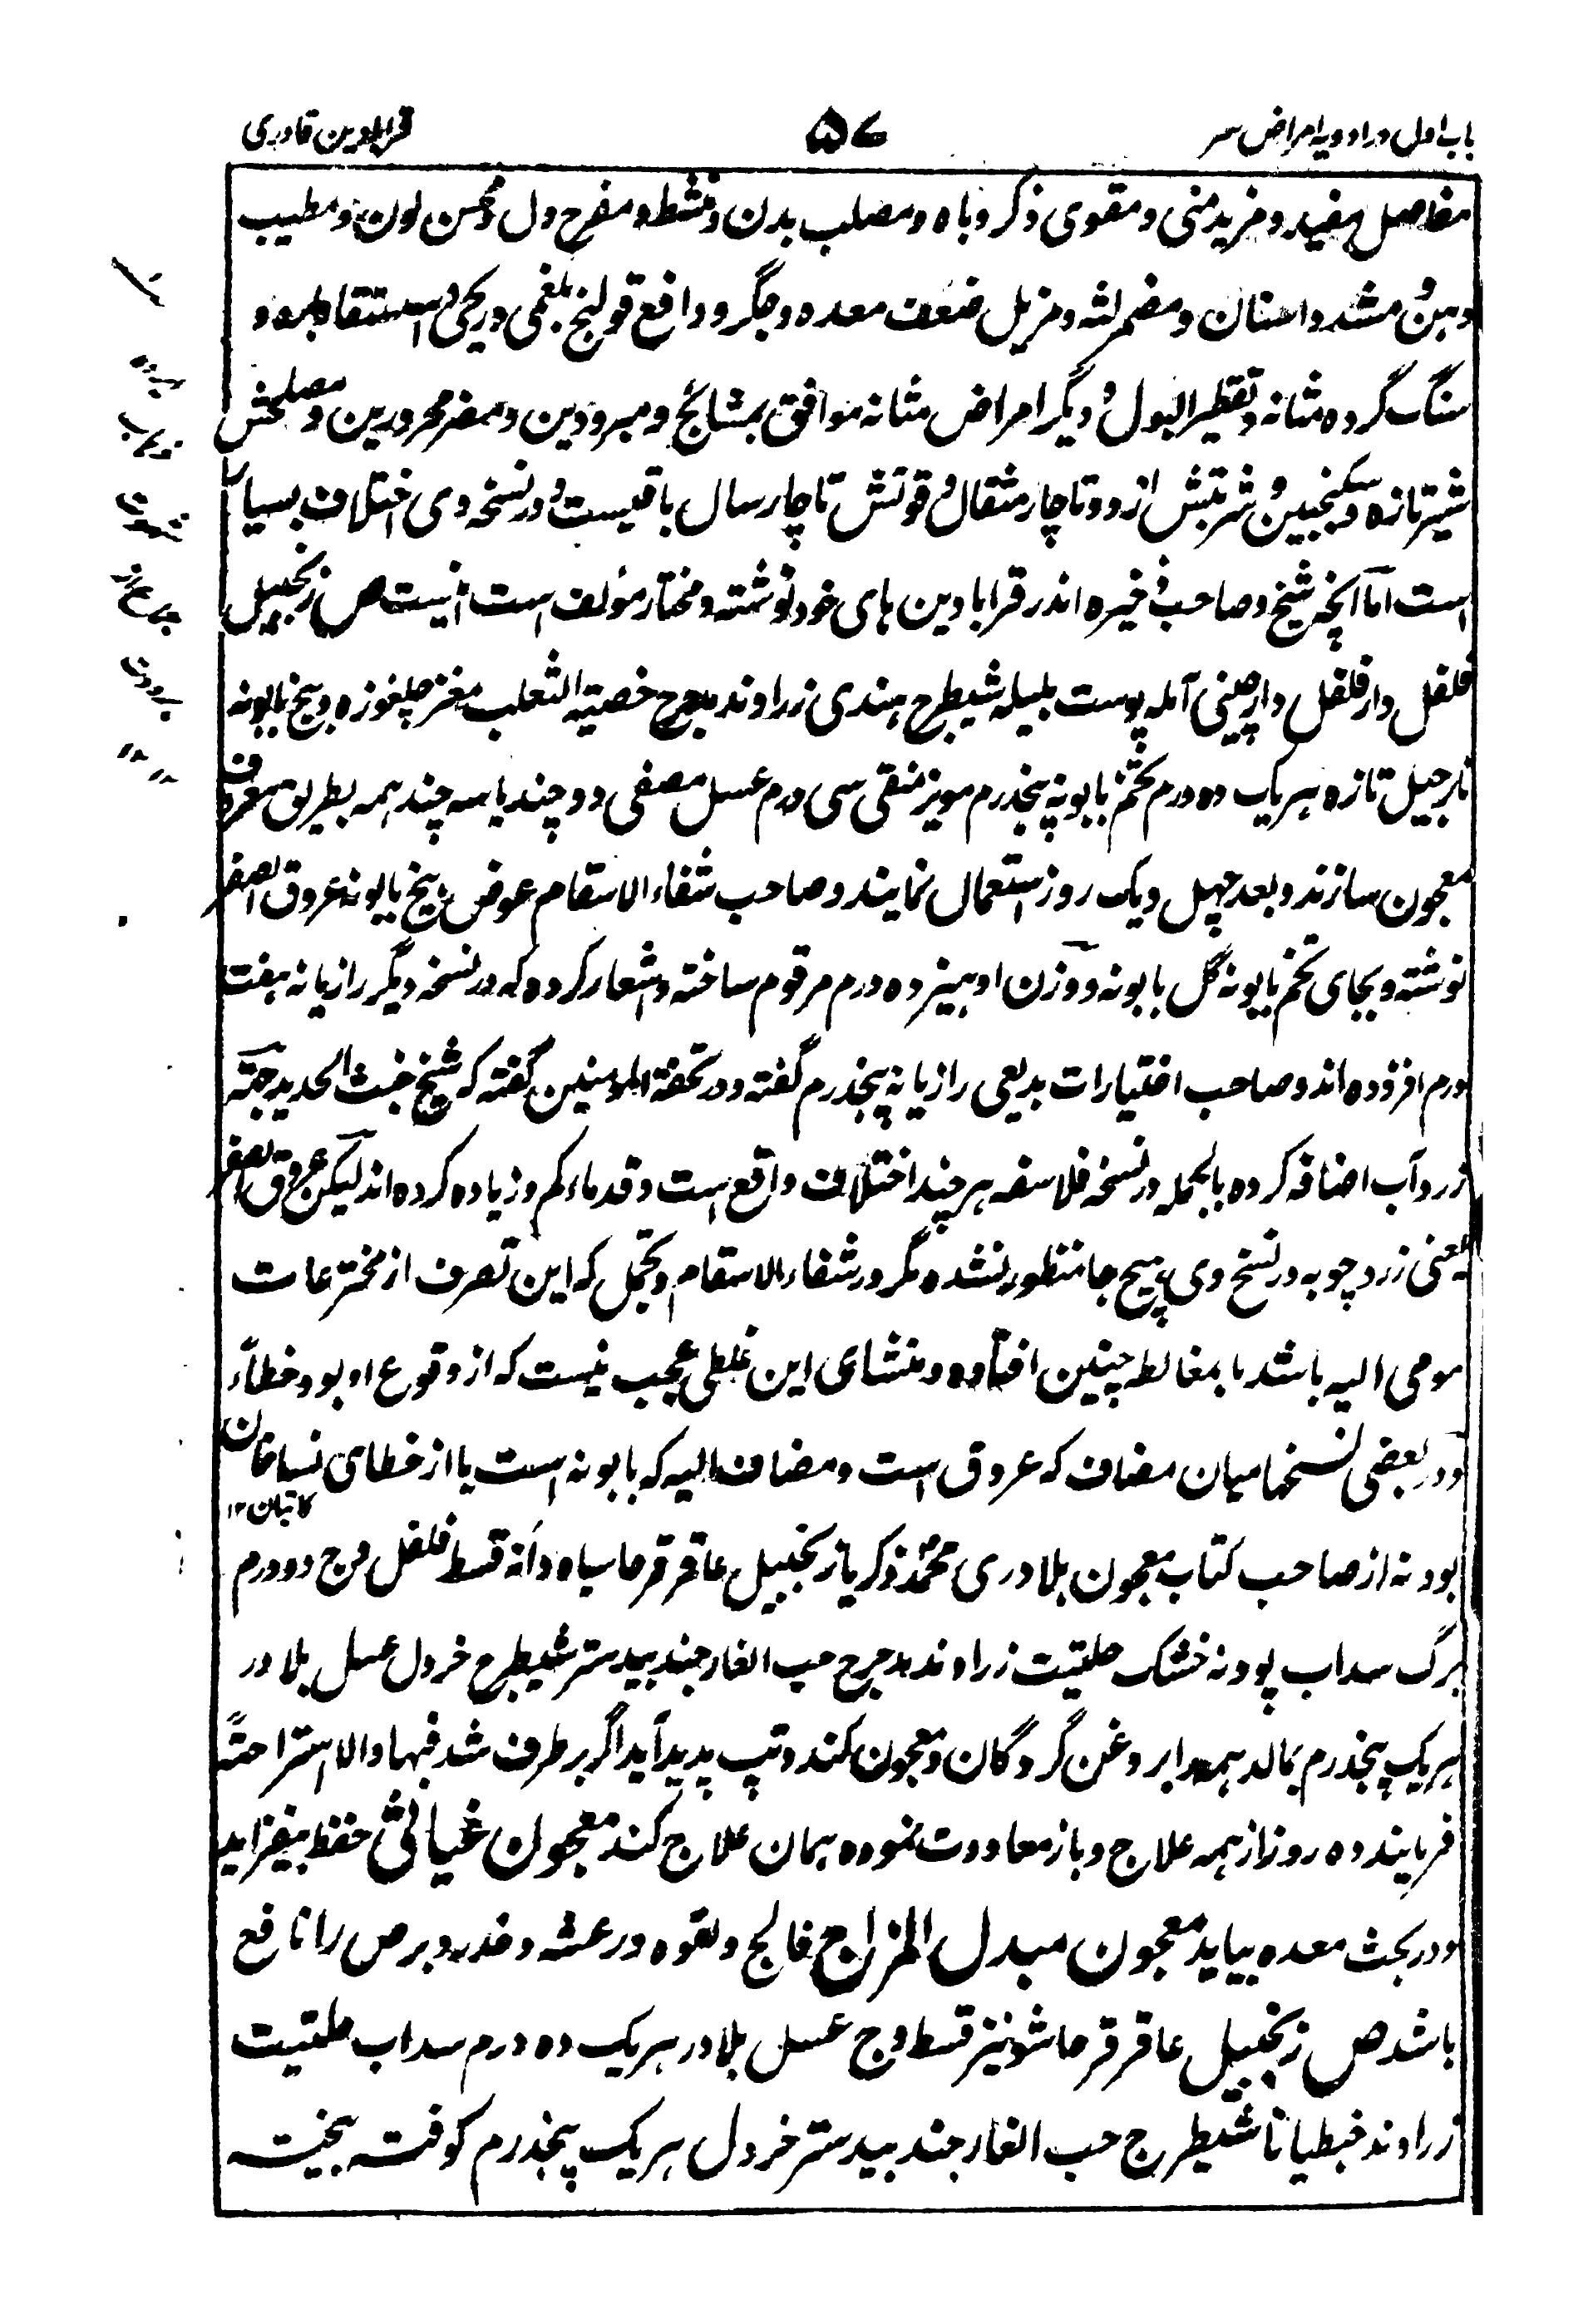 باب اول در ادویه امراض سر ۵۷ قرابادین قادری
مفاصل مفید و مزید منی و مقوی ذکر و باه و مصلب بدن و منشط و مفرح دل و محسن لون و مطیب
دهن و مشد داسنان و مضمر لثه و مزیل ضعف معده و جگر و دافع قولنج بلغمی و ریحی و استسقا و
سنگ گرده و مثانه و تقطیر البول و دیگر امراض مثانه موافق بمشائخ و مبرودین و مضر محرورین و مصلحش
شیر تازه و سکنجبین و شربتش از دو تا چار مثقال و قوتش تا چار سال باقیست و در نسخه وی اختلاف بسیار
است اما آنچه شیخ و صاحب ذخیره اندر قرابادین های خود نوشته و مختار مؤلف است اینست ص زنجبیل
فلفل دارفلفل دارچینی آمله پوست بلیله شیطرج هندی زراوند مدحرج خصیة الثعلب مغز چلغوزه و بیخ بابونه
نارجیل تازه هر یک ده درم تخم بابونه پنجدرم مویز منقی سی درم عسل مصفی دو چند یا سه چند همه بطریق معروف
معجون سازند و بعد چهل و یک روز استعمال نمایند و صاحب شفاء الاسقام عوض بیخ بابونه عروق الصفر
نوشته و بجای تخم بابونه گل بابونه و وزن او هیزده درم مرقوم ساخته و اشعار کرده که در نسخه دیگر رازیانه هفت
درم افزوده اند و صاحب اختیارات بدیعی رازیانه پنجدرم گفته و در تحفة المؤمنین گفته که شیخ خبث الحدید جهته
زرد آب اضافه کرده بالجمله در نسخه فلاسفه هر چند اختلاف واقع است و قدماء کم و زیاده کرده اند لیکن عروق الصفر
یعنی زرد چوبه در نسخ وی هیچ جا منظور نشده مگر در شفاء الاسقام و یحتمل که این تصرف از مخترعات
مومی الیه باشد یا بمغالطه چنین افتاده و منشای این غلطی عجب نیست که از وقوع او بود خطاء
در بعضی نسخها میان مضاف که عروق است و مضاف الیه که بابونه است یا از خطای نساخان
کاتبان ۱۲
بود نه از صاحب کتاب معجون بلادری محمد ذکریا زنجبیل عاقرقرحا سیاه دانه قسط فلفل وج دو درم
برگ سداب پودنه خشک حلتیت زراوند مدحرج حب الغار جندبیدستر شیطرج خردل عسل بلادر
هر یک پنجدرم بمالد همه را بروغن گردگان و معجون کند و تپ پدید آید اگر بر طرف شد فبها و الا استراحة
فرمایند ده روز از همه علاج و باز معاودت نموده همان علاج کند معجون غیاثی حفظ بیفزاید
و در بحث معده بیاید معجون مبدل المزاج فالج و لقوه و رعشه و خدر و برص را نافع
باشد ص زنجبیل عاقرقرحا شونیز قسط وج عسل بلادر هر یک ده درم سداب حلتیت
زراوند خبطیانا شیطرج حب الغار جندبیدستر خردل هر یک پنجدرم کوفته بیخته